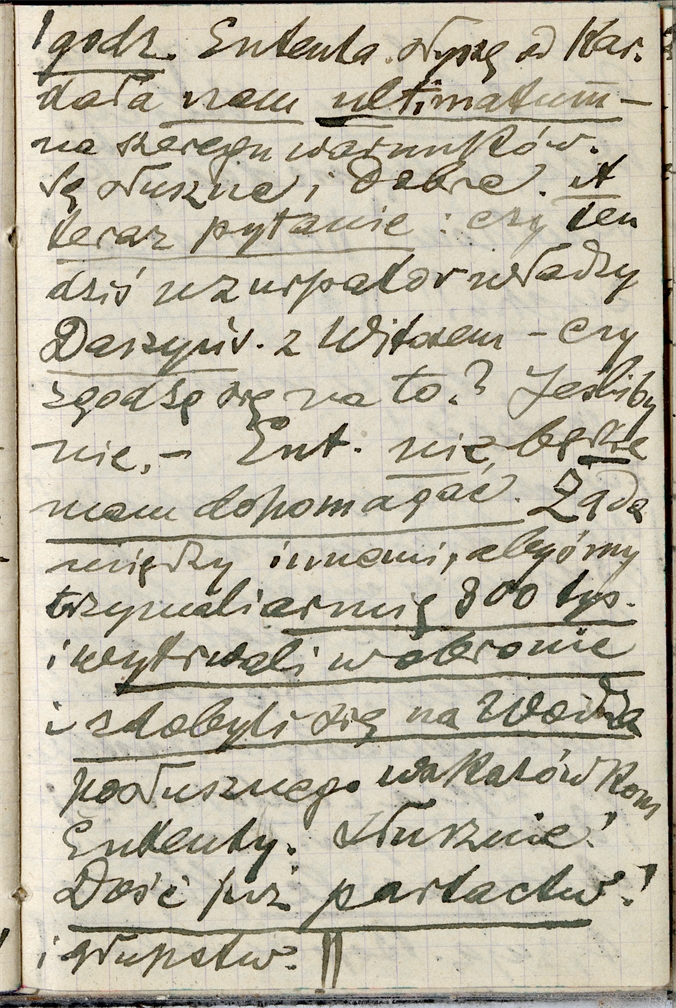 1 godz. Ententa. słyszę od Kar.
dała nam ultimatum –
na szeregu warunków.
Są słuszne i dobre. A
teraz pytanie: czy ten
dziś uzurpator władzy
Daszyńs. z Witosem – czy
zgodzą się na to? Jeśliby
nie, – Ent. nie będzie
nam dopomagać. Żąda
między innemi, abyśmy
trzymali armię 800 tys.
i wytrwali w obronie
i zdobyli się na Wodza
posłusznego wskazówkom
Ententy. Słusznie!
Dość już partactw!
i głupstw. ||